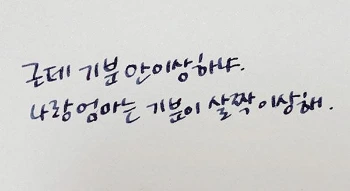 근데 기분 안이상하냐.
나랑엄마는 기분이 살짝이상해.